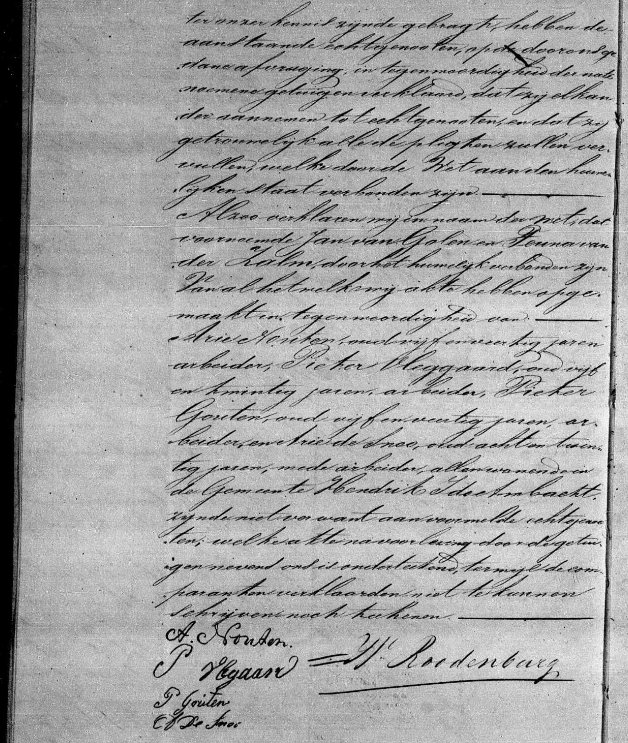 ter onzer kennis zijnde gebragt, hebben de
aanstaande echtgenooten, op de door ons ge
dane afvraging, in tegenwoordigheid der nate
noemene getuigen verklaard, dat zij elkan
der aannemen tot echtgenooten, en dat zij
getrouwelijk alle de pligten zullen ver-
vullen, welke door de Wet aan den huwe
lijken staat verbonden zijn
Alzoo verklaren wij in naam der wet, dat
voornoemde Jan van Golen en Teuna van
der Zalm, door het huwelijk verbonden zijn
Van al hetwelk wij akte hebben opge-
maakt in tegenwoordigheid van
Arie Nouten, oud vijf en veertig jaren
arbeider, Pieter Vleggaard, oud vijf
en twintig jaren, arbeider, Pieter
Gouten, oud vijf en veertig jaren, ar-
beider, en Arie de Snoo, oud acht en twin
tig jaren, mede arbeider, allen wonende in
de Gemeente Hendrik Ido Ambacht,
zijnde niet verwant aan voormelde echtgenoo
ten, welke akte na voorlezing door de getui
gen nevens ons is onderteekend, terwijl de com
paranten verklaarden niet te kunnen
schrijven noch teekenen.
A. Nouten.
P Vlegaard
Roodenburg
P Gouten
De Snoo